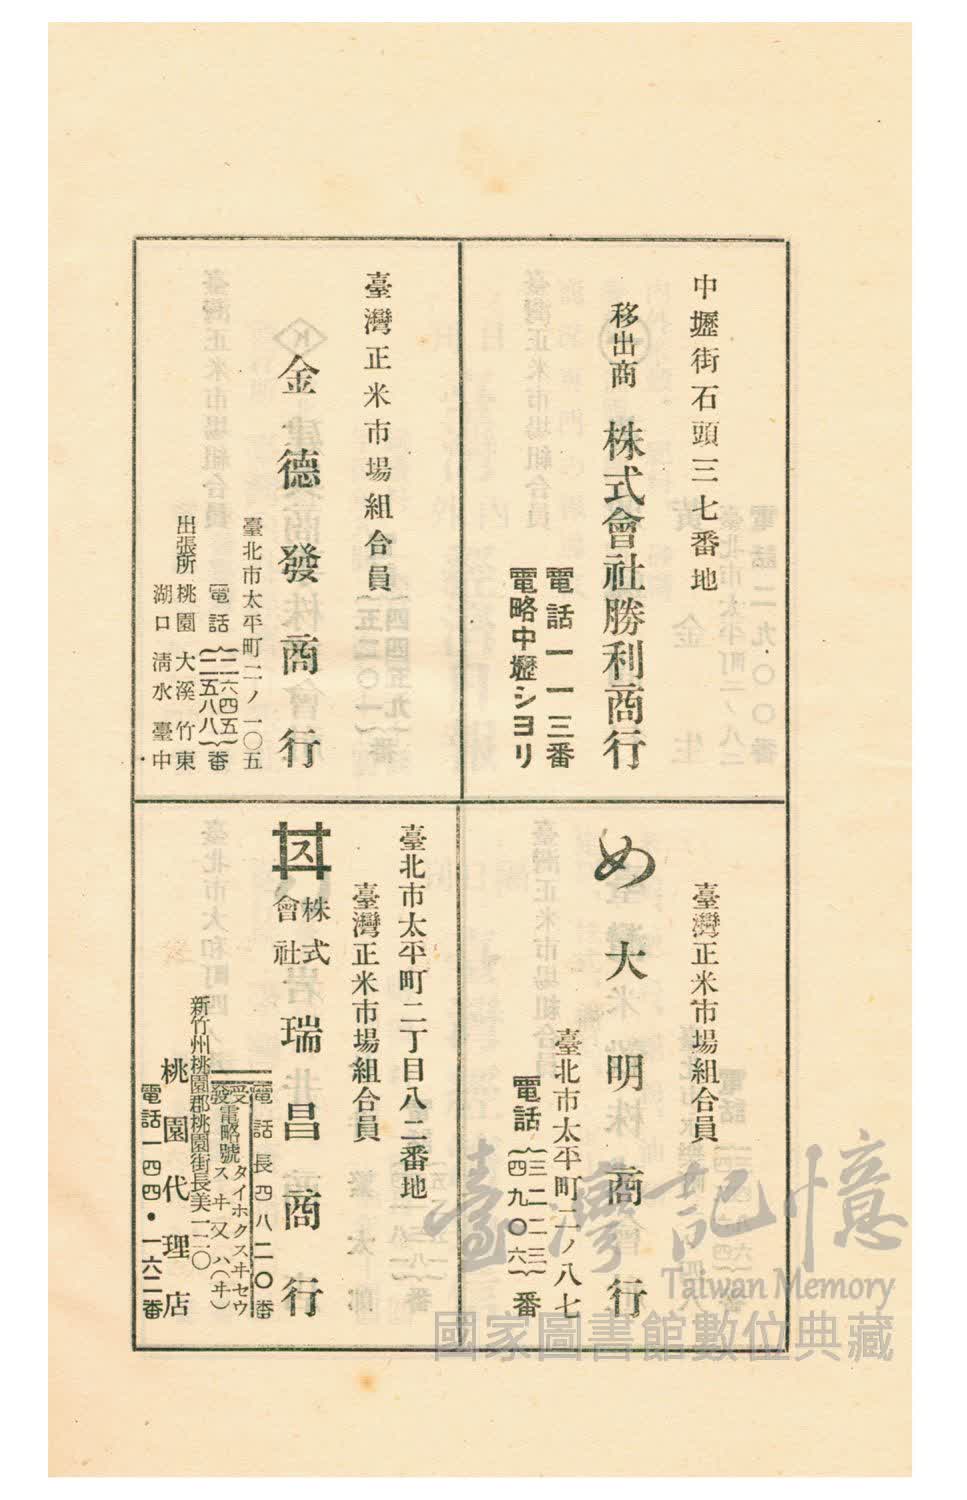 中壢街石頭三七番地
移出商 株式會社勝利商行
電話一一三番
電略中壢シヨリ
臺灣正米市場組合員
金德發商行
臺北市太平町二ノ一〇五
電話{二六四五 二五八八}番
出張所 桃園 大溪 竹東
湖口 淸水 臺中
臺灣正米市場組合員
め 大明商行
臺北市太平町二ノ八七
電話{三二二三 四九〇六}番
臺北市太平町二丁目八二番地
臺灣正米市場組合員
ス 株式會社 瑞昌商行
電話長四八二〇番
受發電略號 タイホクスヰセウ スヰ又ハ(ヰ)
新竹州桃園郡桃園街長美一二〇
桃園代理店
電話一四四・一六二番
臺灣記憶
Taiwan Memory
國家圖書館數位典藏